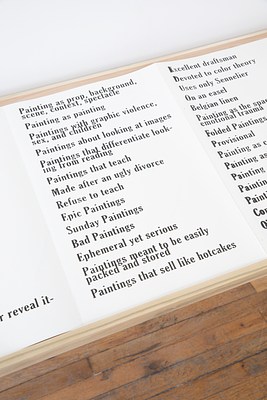 r reveal it-
Painting as prop, background,
scene, context, spectacle
Painting as painting
Paintings with graphic violence,
sex, and children
Paintings about looking at images
Paintings that differentiate look-
ing from reading
Paintings that teach
Made after an ugly divorce
Refuse to teach
Epic Paintings
Sunday Paintings
Bad Paintings
Ephemeral yet serious
Paintings meant to be easily
packed and stored
Paintings that sell like hotcakes
Excellent draftsman
Devoted to color theory
Uses only Sennelier
On an easel
Belgian linen
Painting as the spa
emotional trauma
Folded Paintings
Provisional
Painting as c
Painting as
Painting
Paintin
Paint
Co